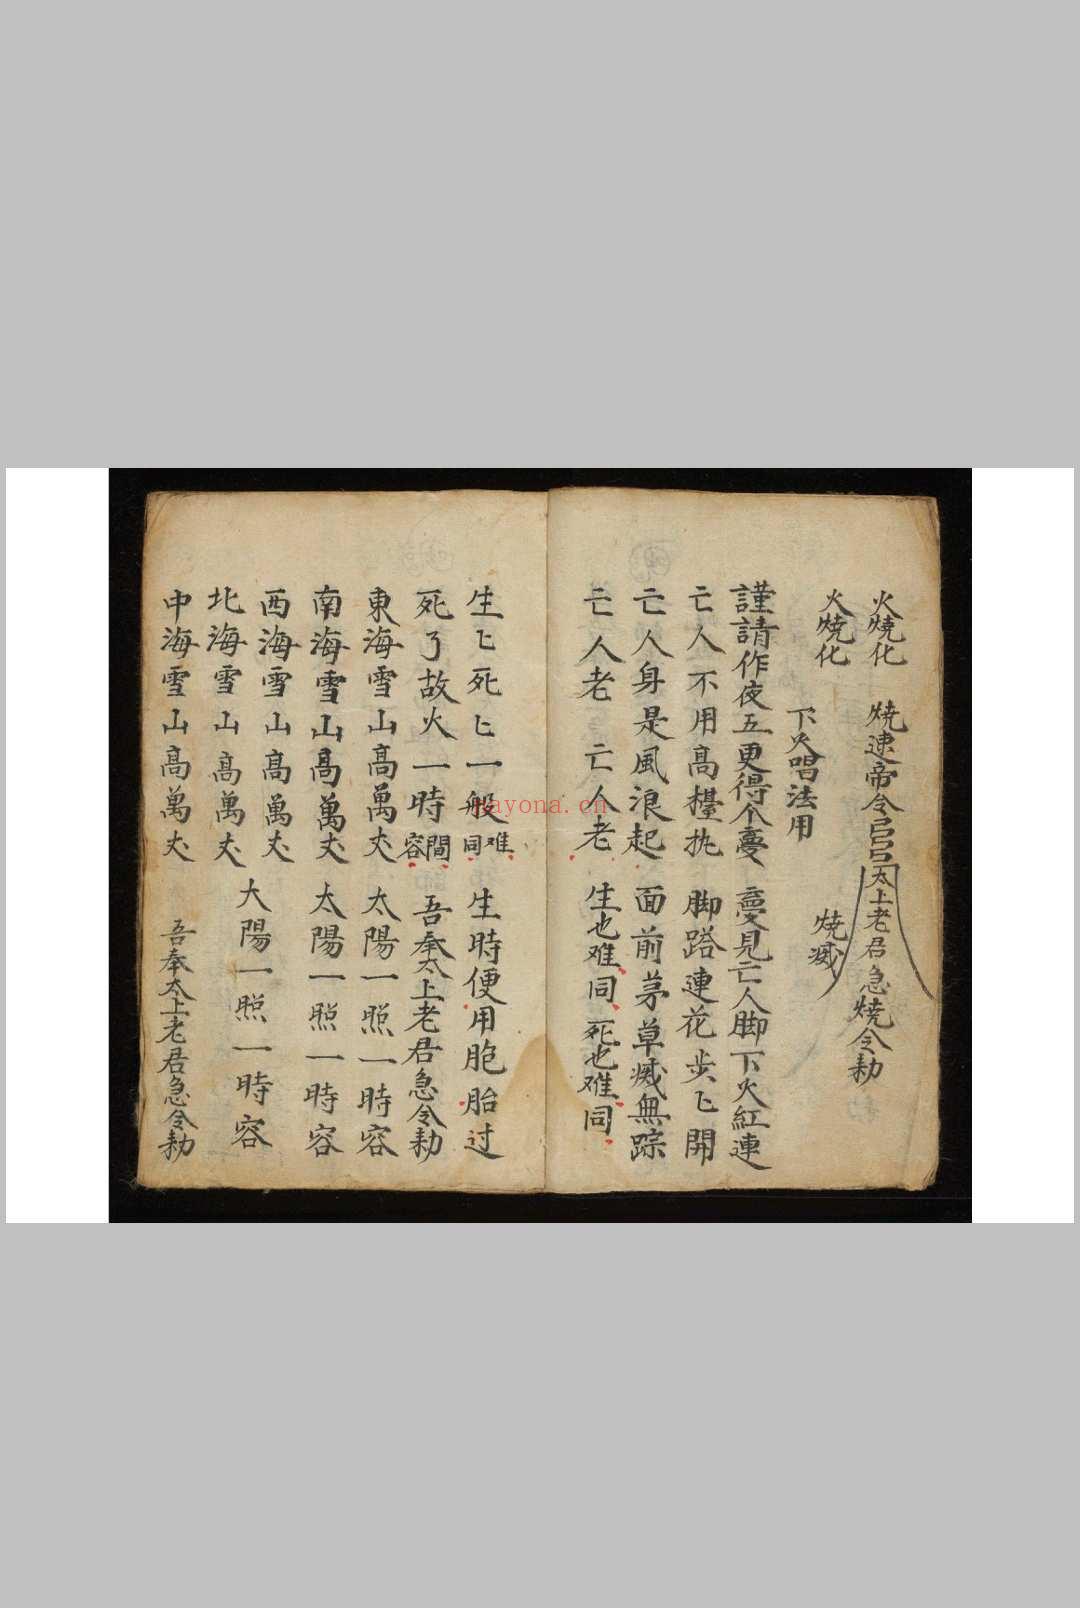 火燒化
燒速帝令
太上老君急燒令勅
火燒化
燒滅
下火唱法用
謹請作夜五更得个憂 憂見亡人脚下火紅連
亡人不用高檯执 脚踏連花步匕開
亡人身是風浪起 面前茅草滅無踪
亡人老 亡人老 生也难同 死也难同
生匕死匕一般难同 生時便用胞胎过
死了故火一時間容 吾奉太上老君急令勅
東海雪山高萬丈 太陽一照一時容
南海雪山高萬丈 太陽一照一時容
西海雪山高萬丈
北海雪山高萬丈 大陽一照一時容
中海雪山高萬丈 吾奉太上老君急令勅
nayona.cn